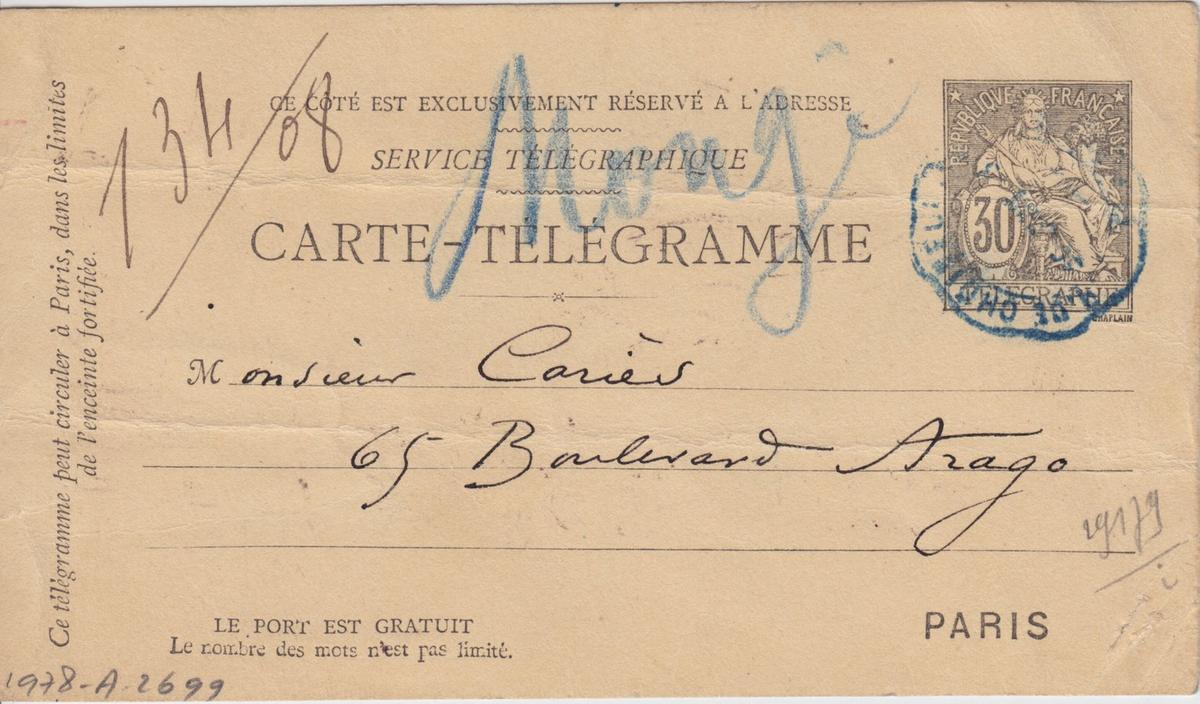 Ce télégramme peut circuler à Paris, dans les limites
de l'enceinte fortifiée.
134/08
CE CÔTÉ EST EXCLUSIVEMENT RÉSERVÉ A L'ADRESSE
SERVICE TÉLÉGRAPHIQUE
CARTE-TÉLÉGRAMME
REPUBLIQUE FRANÇAISE
30
TELEGRAPHE
CHAPLAIN
Monsieur Cariès
65 Boulevard Arago
29179
PARIS
LE PORT EST GRATUIT
Le nombre des mots n'est pas limité.
1978-A-2699